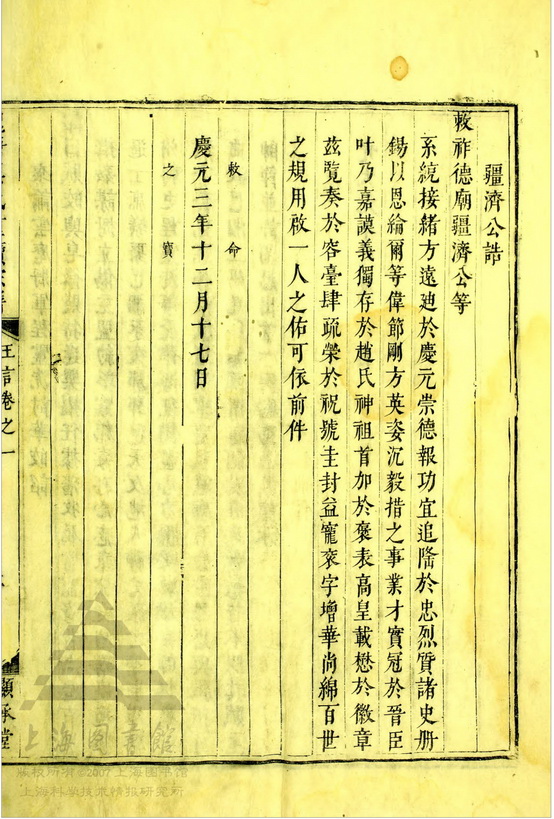 疆濟公誥
敕祚德廟疆濟公等
系統接緒方遠廸於慶元崇德報功宜追隆於忠烈質諸史册
錫以恩綸爾等偉節剛方英姿沉毅措之事業才實冠於晉臣
叶乃嘉謨義獨存於趙氏神祖首加於褒表高皇載懋於徽章
兹覽奏於容臺肆疏榮於祝號圭封益寵衮字增華尚綿百世
之規用啟一人之佑可依前件
慶元三年十二月十七日
敕命
之寶
王言卷之一
顯承堂
上海图書館
版权所有©2007上海图书馆
上海科学技术情报研究所